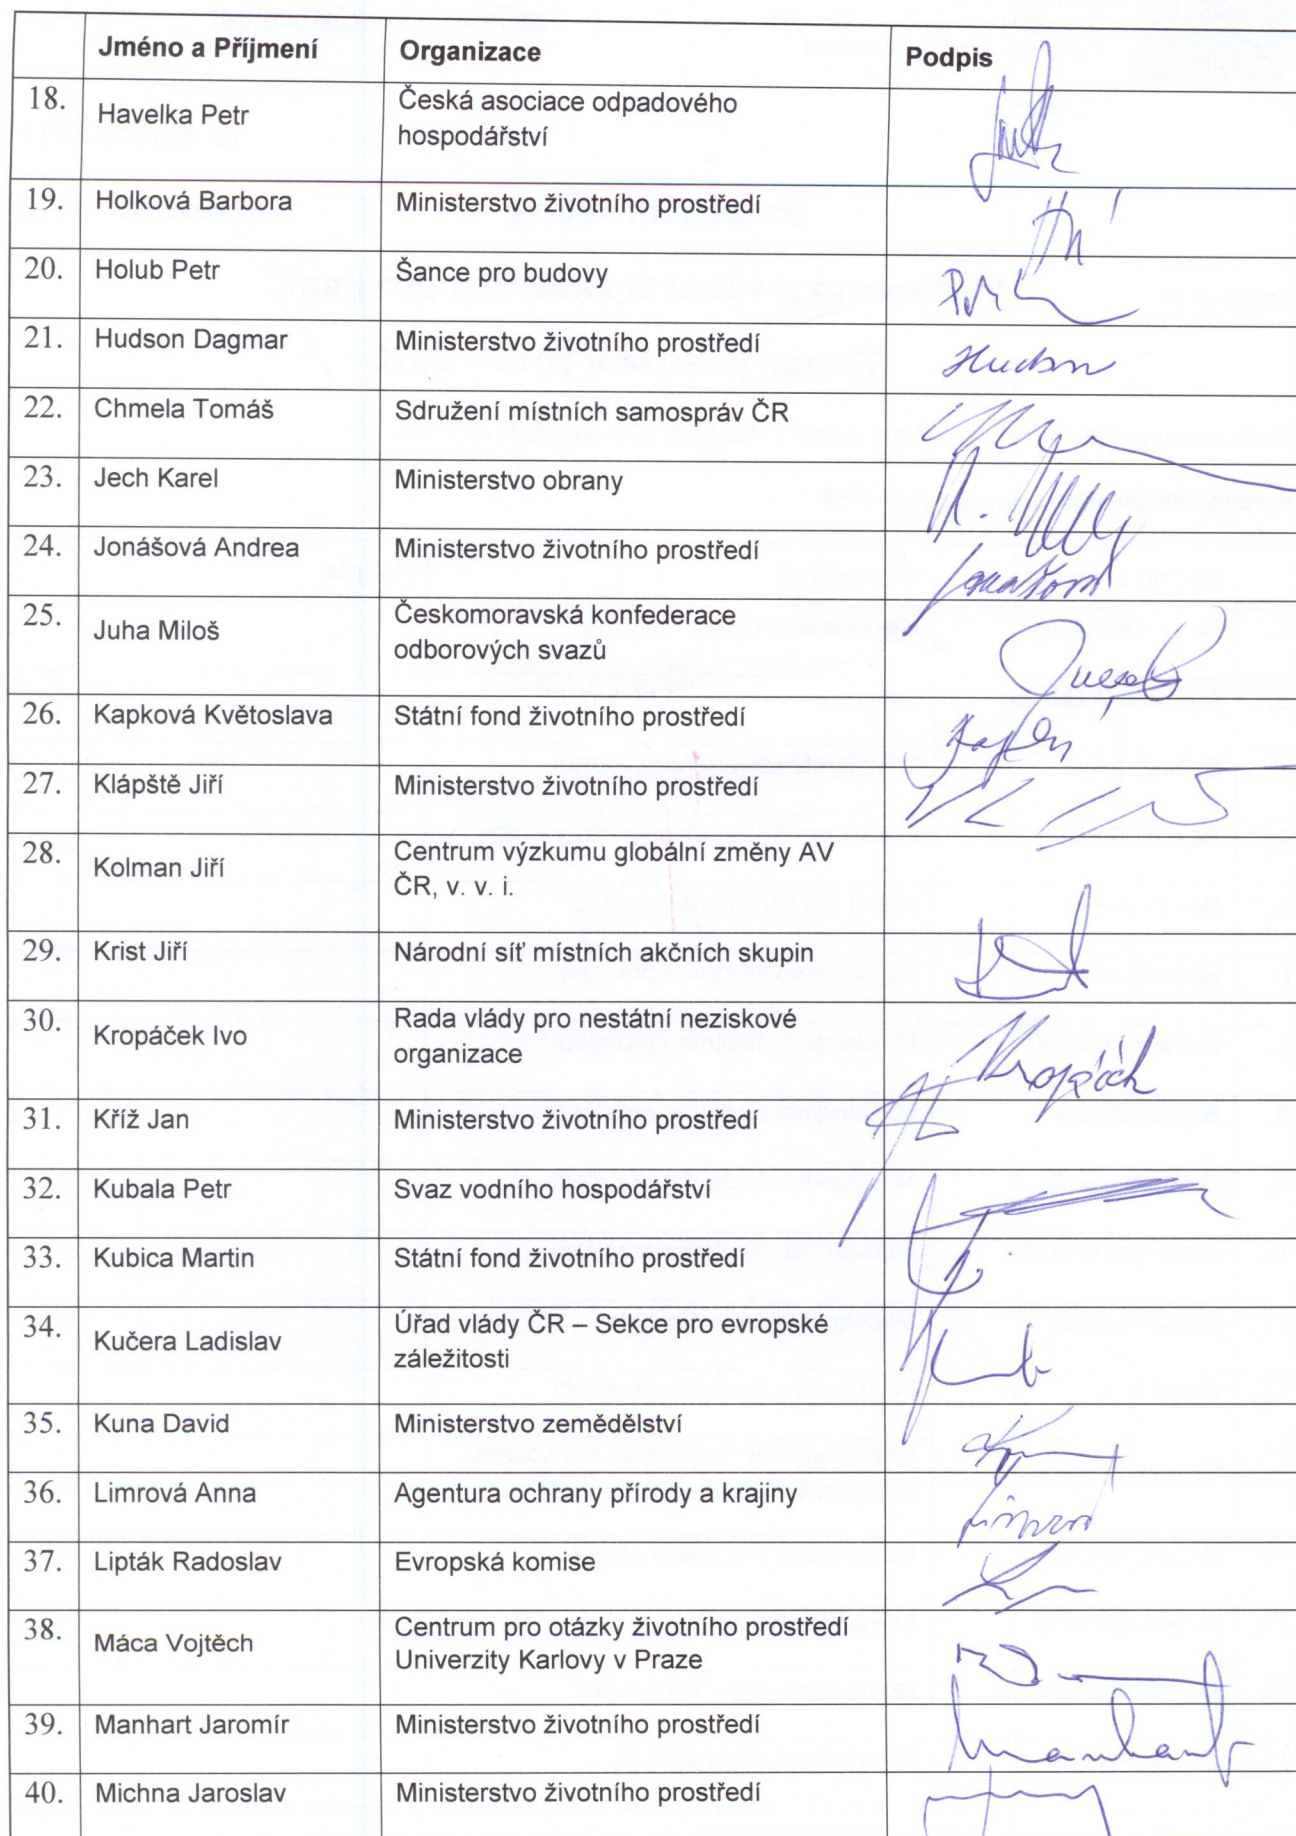 Jméno a Příjmení Organizace Podpis
18. Havelka Petr Česká asociace odpadového
hospodářství
19. Holková Barbora Ministerstvo životního prostředí
20. Holub Petr Šance pro budovy
21. Hudson Dagmar Ministerstvo životního prostředí Hudson
22. Chmela Tomáš Sdružení místních samospráv ČR
23. Jech Karel Ministerstvo obrany
24. Jonášová Andrea Ministerstvo životního prostředí
25. Juha Miloš Českomoravská konfederace
odborových svazů
26. Kapková Květoslava Státní fond životního prostředí
27. Klápště Jiří Ministerstvo životního prostředí
28. Kolman Jiří Centrum výzkumu globální změny AV
ČR, v. v. i.
29. Krist Jiří Národní síť místních akčních skupin
30. Kropáček Ivo Rada vlády pro nestátní neziskové
organizace
31. Kříž Jan Ministerstvo životního prostředí
32. Kubala Petr Svaz vodního hospodářství
33. Kubica Martin Státní fond životního prostředí
34. Kučera Ladislav Úřad vlády ČR – Sekce pro evropské
záležitosti
35. Kuna David Ministerstvo zemědělství
36. Limrová Anna Agentura ochrany přírody a krajiny
37. Lipták Radoslav Evropská komise
38. Máca Vojtěch Centrum pro otázky životního prostředí
Univerzity Karlovy v Praze
39. Manhart Jaromír Ministerstvo životního prostředí Manhart
40. Michna Jaroslav Ministerstvo životního prostředí